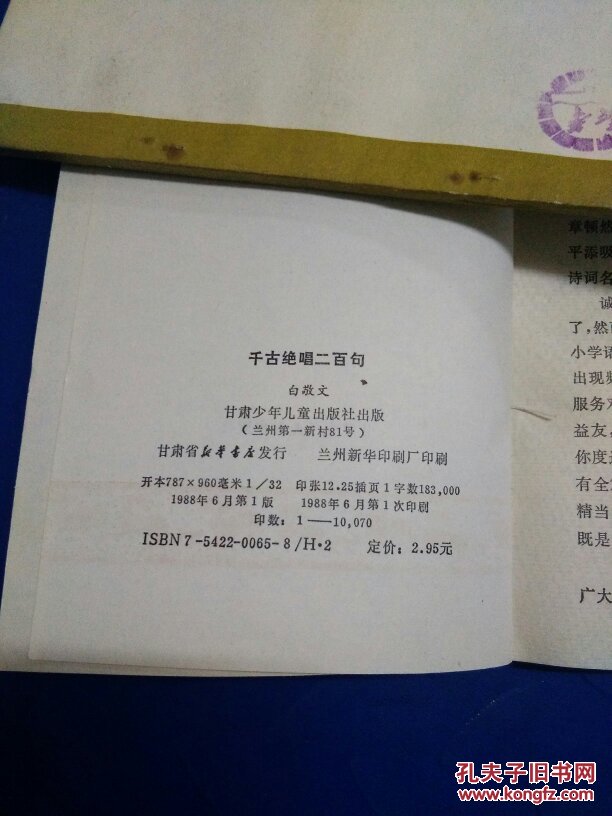 千古绝唱二百句
白敬文
甘肃少年儿童出版社出版
（兰州第一新村81号）
甘肃省新华书店发行 兰州新华印刷厂印刷
开本787×960毫米1/32 印张12.25插页1字数183,000
1988年6月第1版 1988年6月第1次印刷
印数：1——10,070
ISBN7-5422-0065-8/H·2 定价：2.95元
章顿然
平添
诗词名
诚
了，然
小学语
出现频
服务对
益友，
你度
有全
精当
既是
广大
孔夫子旧书网
www.kongfz.com